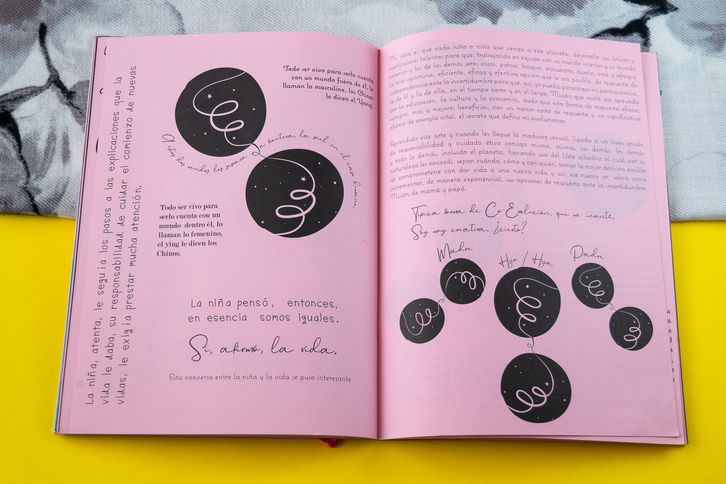 La niña, atenta, le seguía los pasos a las explicaciones que la
vida le daba, su responsabilidad de cuidar el comienzo de nuevas
vidas, le exigía prestar mucha atención.
Todo ser vivo para serlo cuenta
con un mundo fuera de él, lo
llaman lo masculino, los Chinos
le dicen el Yang.
los mundos los separa la piel en el caso humano,
Todo ser vivo para
serlo cuenta con un
mundo dentro él, lo
llaman lo femenino,
el ying le dicen los
Chinos.
La niña pensó, entonces,
en esencia somos iguales.
Sí, afirmó, la vida.
Esta conversa entre la niña y la vida se puso interesante.
Mi idea es que cada niño o niña que venga a este planeta, desarrolle su único y
particulares talentos para que, trabajando en equipo con su mundo interior y su mundo
exterior y los de los demás seres vivos, piense, busque, encuentre, diseñe, cree y ofrezca
la más oportuna, eficiente, eficaz y efectiva opción que le sea posible, de respuesta de
independencia ante la incertidumbre para que, así, yo pueda garantizar mi permanencia,
la de él y la de ella, en el tiempo corto y en el largo. Misión que ojalá sea apoyada
por la educación, la cultura y la economía, dado que esta forma de respuesta ofrece,
siempre, más y mejores beneficios, con un menor costo de respuesta y un significativo
ahorro de energía vital, el secreto que define mi evolucionar.
Aprendido este arte y cuando les llegue la madurez sexual, ligada a un buen grado
de responsabilidad y cuidado ético consigo misma, mismo, las demás, los demás
y todo lo demás, incluido el planeta, haciendo uso del libre albedrío el cual por su
naturaleza les concedí, sepan cuándo, cómo y con quién, tomar la mejor decisión posible
de comprometerse con dar vida a una nueva vida y así, ese nuevo en vibra como
incrementar, de manera exponencial, su opciones de respuesta ante la incertidumbre
Misión de mamá y papá.
Típica toma de Co-Evolución, que se invente,
Soy muy creativa, ¿cierto?
Madre
Hijo / Hija
Padre